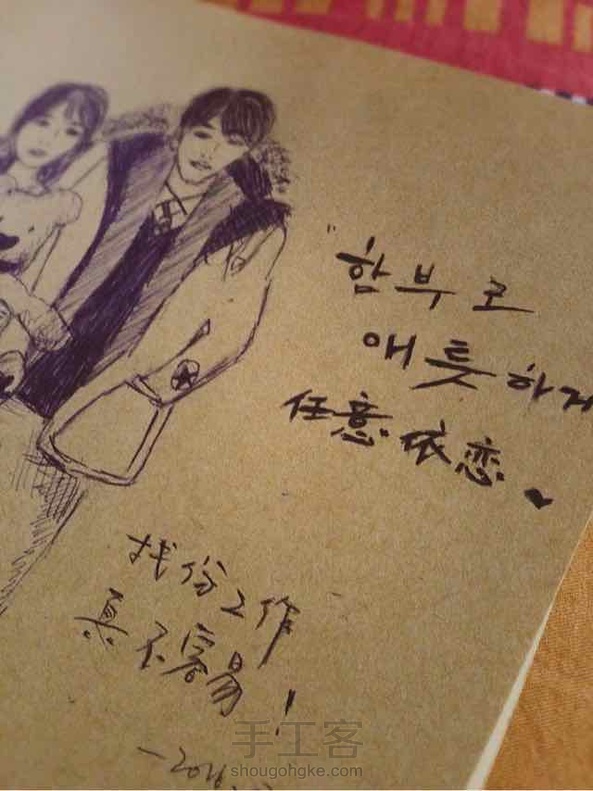 "함부로
애틋하게
任意依恋
找份工作
真不容易!
手工客
shougohgke.com